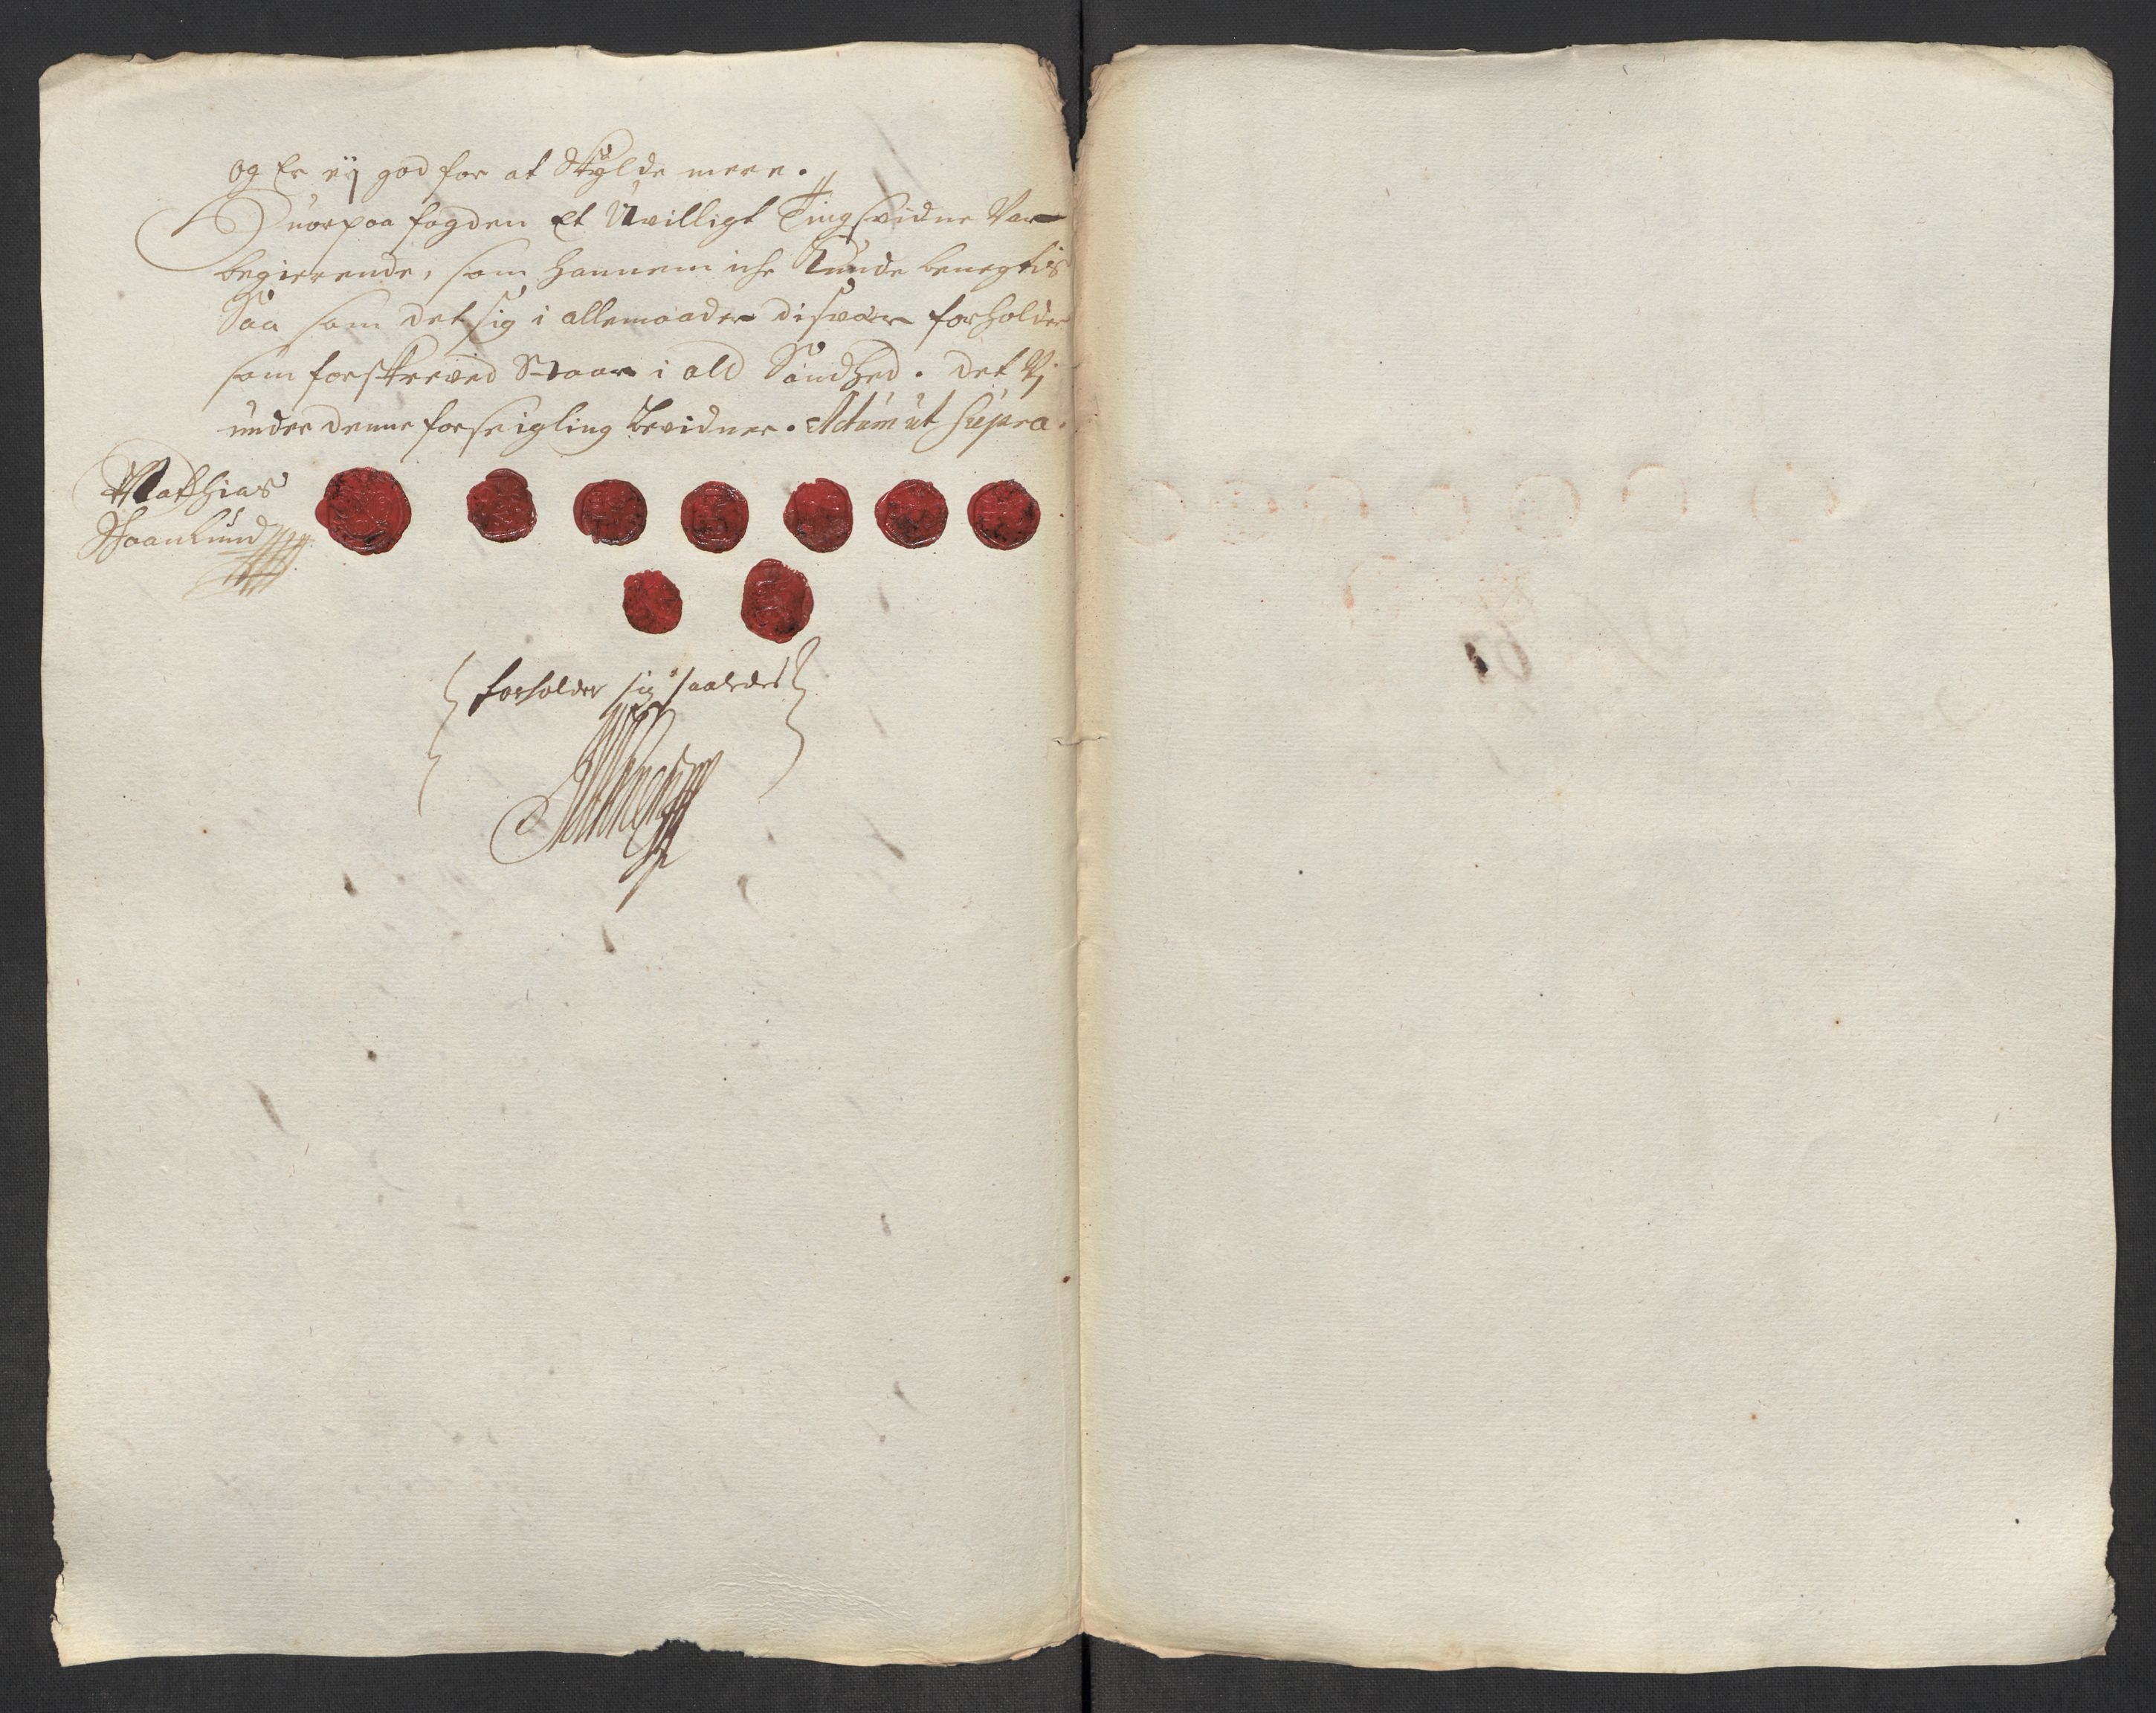 og Er eÿ god for at Skÿlde mere.
Huorpaa fogden Et Uvilligt Tingsvidne Var
begierende, som hannem iche Kunde benegtis
Saa som det sig i allemaader disvær forholder
som forskreved Staar i ald Sandhed. det Vj
under denne forseigling bevidner. Actum ut supra.
Matthias
forholder sig saaledes